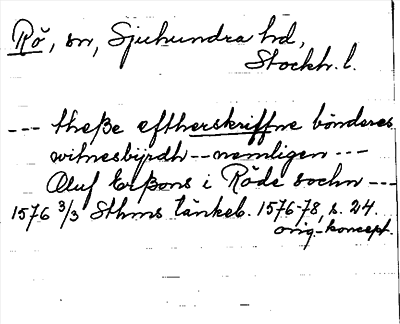 Rö, sn, Sjuhundra hd,
Stockh. l.
--- theße eftherskriffne bönderes
witnesbyrdh -- nemligen ---
Oluf Erßons i Röde sochn ---
1576 3/3 Sthms tänkeb. 1576-78, s. 24.
orig-koncept.